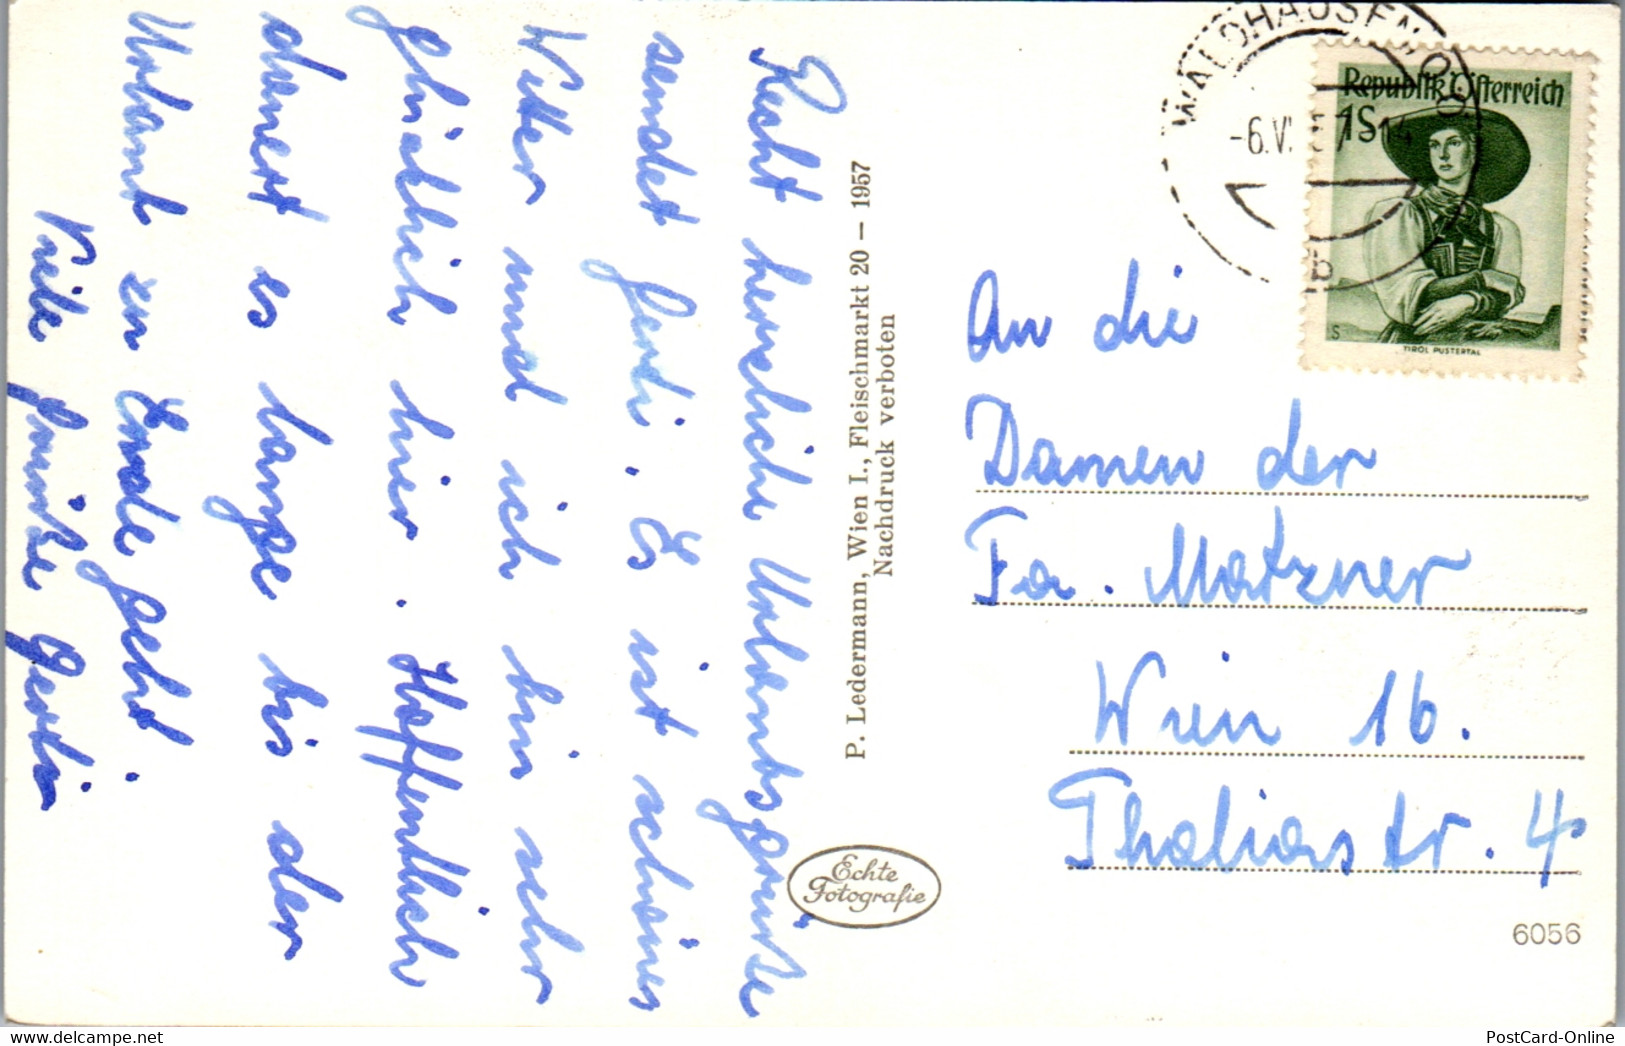 Recht herzliche Urlaubsgrüße
sendet Gerti. Es ist schönes
Wetter und ich bin sehr
glücklich hier. Hoffentlich
dauert es lange bis der
Urlaub zu Ende geht.
Viele Grüße Gerti
P. Ledermann, Wien I., Fleischmarkt 20 — 1957
Nachdruck verboten
Echte
Fotografie
WALDHAUSEN
-6.VI.
14
B
Republik Österreich
1S
S
TIROL PUSTERTAL
An die
Damen der
Fa. Matzner
Wien 16.
Thaliastr. 4
6056
PostCard-Online